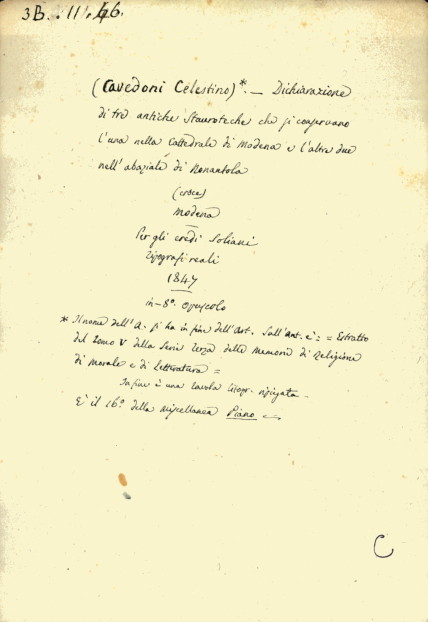 3B. II. 46.
(Cavedoni Celestino)*. — Dichiarazione
di tre antiche Stauroteche che si conservano
l'una nella Cattedrale di Modena e l'altre due
nell'abaziale di Nonantola
(croce)
Modena
Per gli eredi Soliani
Tipografi reali
1847
in-8º. opuscolo
* Il nome dell'A. si ha in fine dell'Art. Sull'Ant. è: = Estratto
dal Tomo V della Serie terza delle Memorie di Religione
di Morale e di Letteratura =
In fine è una tavola litogr. ripiegata.
È il 16º. della Miscellanea Piano
C